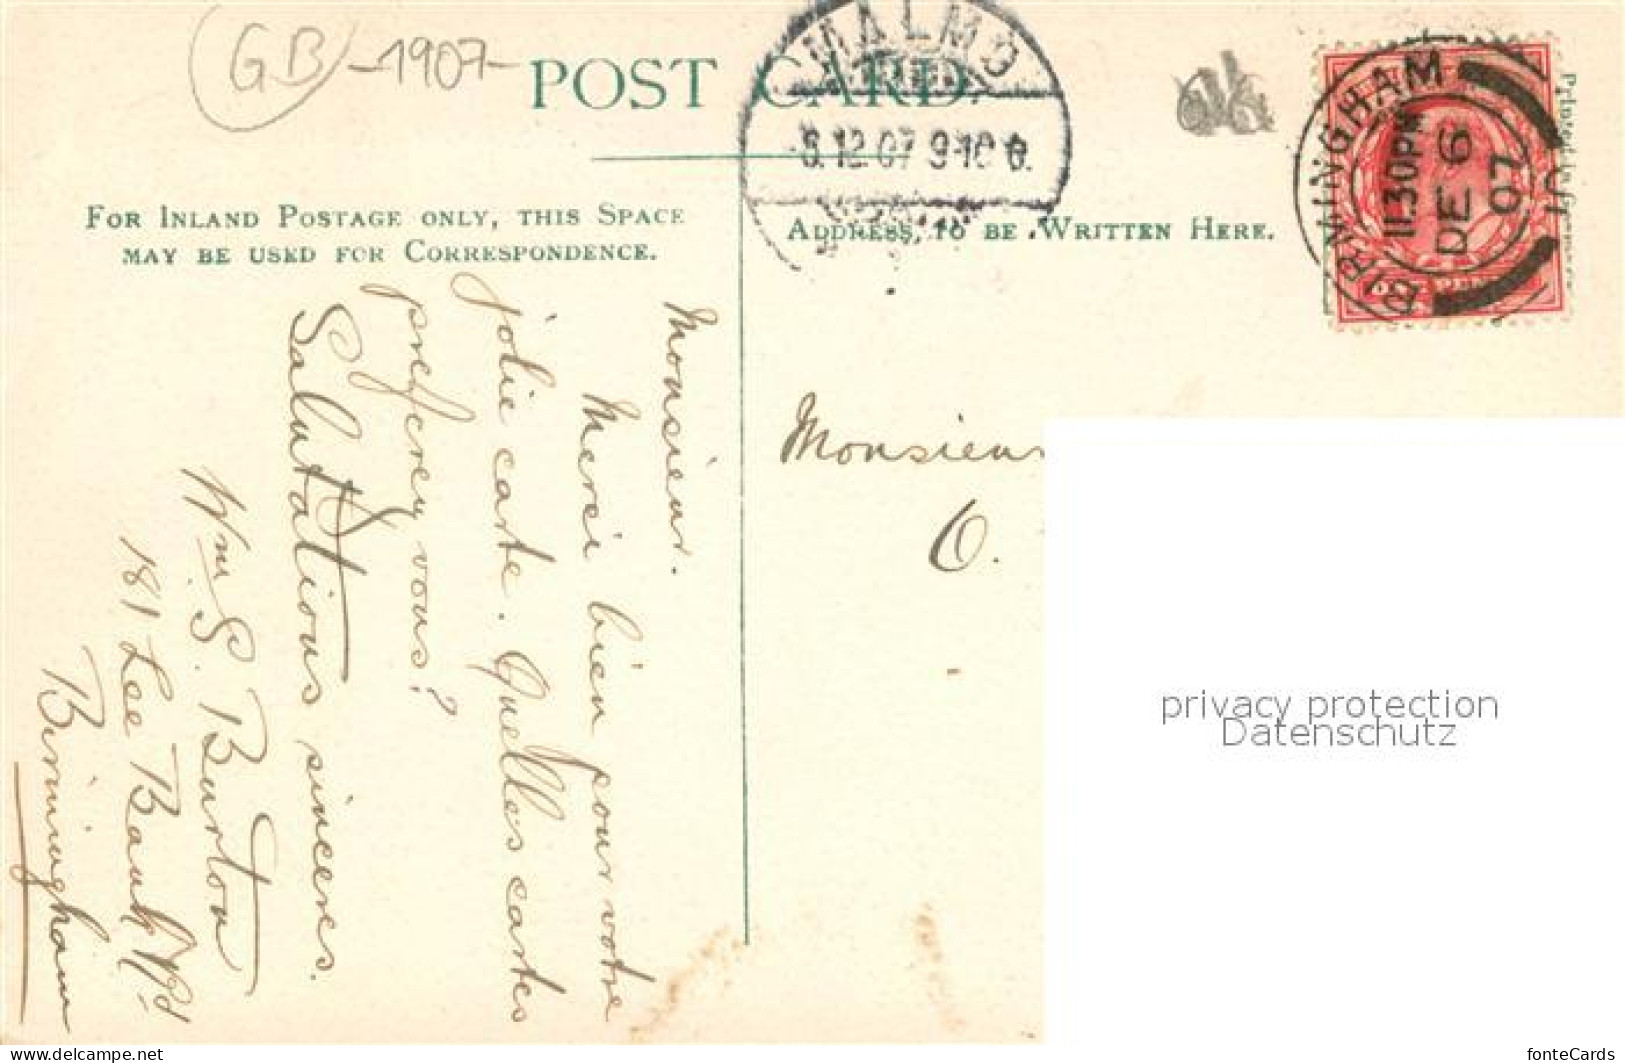 GB -1907-
POST CARD.
MALMÖ
8.12.07 9-10
BIRMINGHAM
11.30PM
DE 6
07
FOR INLAND POSTAGE ONLY, THIS SPACE
MAY BE USED FOR CORRESPONDENCE.
ADDRESS, TO BE WRITTEN HERE.
Monsieur.
Merci bien pour votre
jolie carte. Quelles cartes
preferey vous?
Salutations sinceres.
Wm. S. Burton
181 Lee Bank Rd
Birmingham
Monsieur
O.
privacy protection
Datenschutz
www.delcampe.net
fonteCards